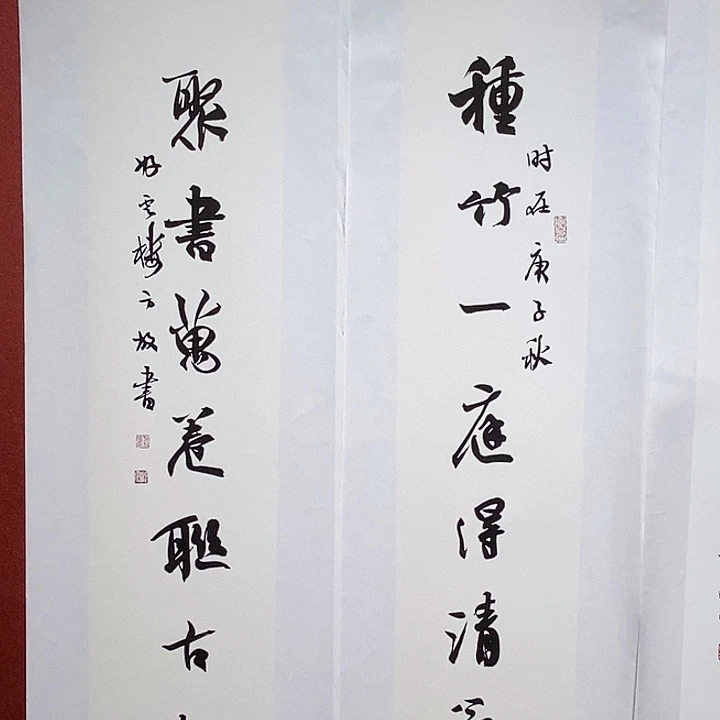 種竹一庭得清
时在庚子秋
聚書萬卷聯古
好雲樓方放書